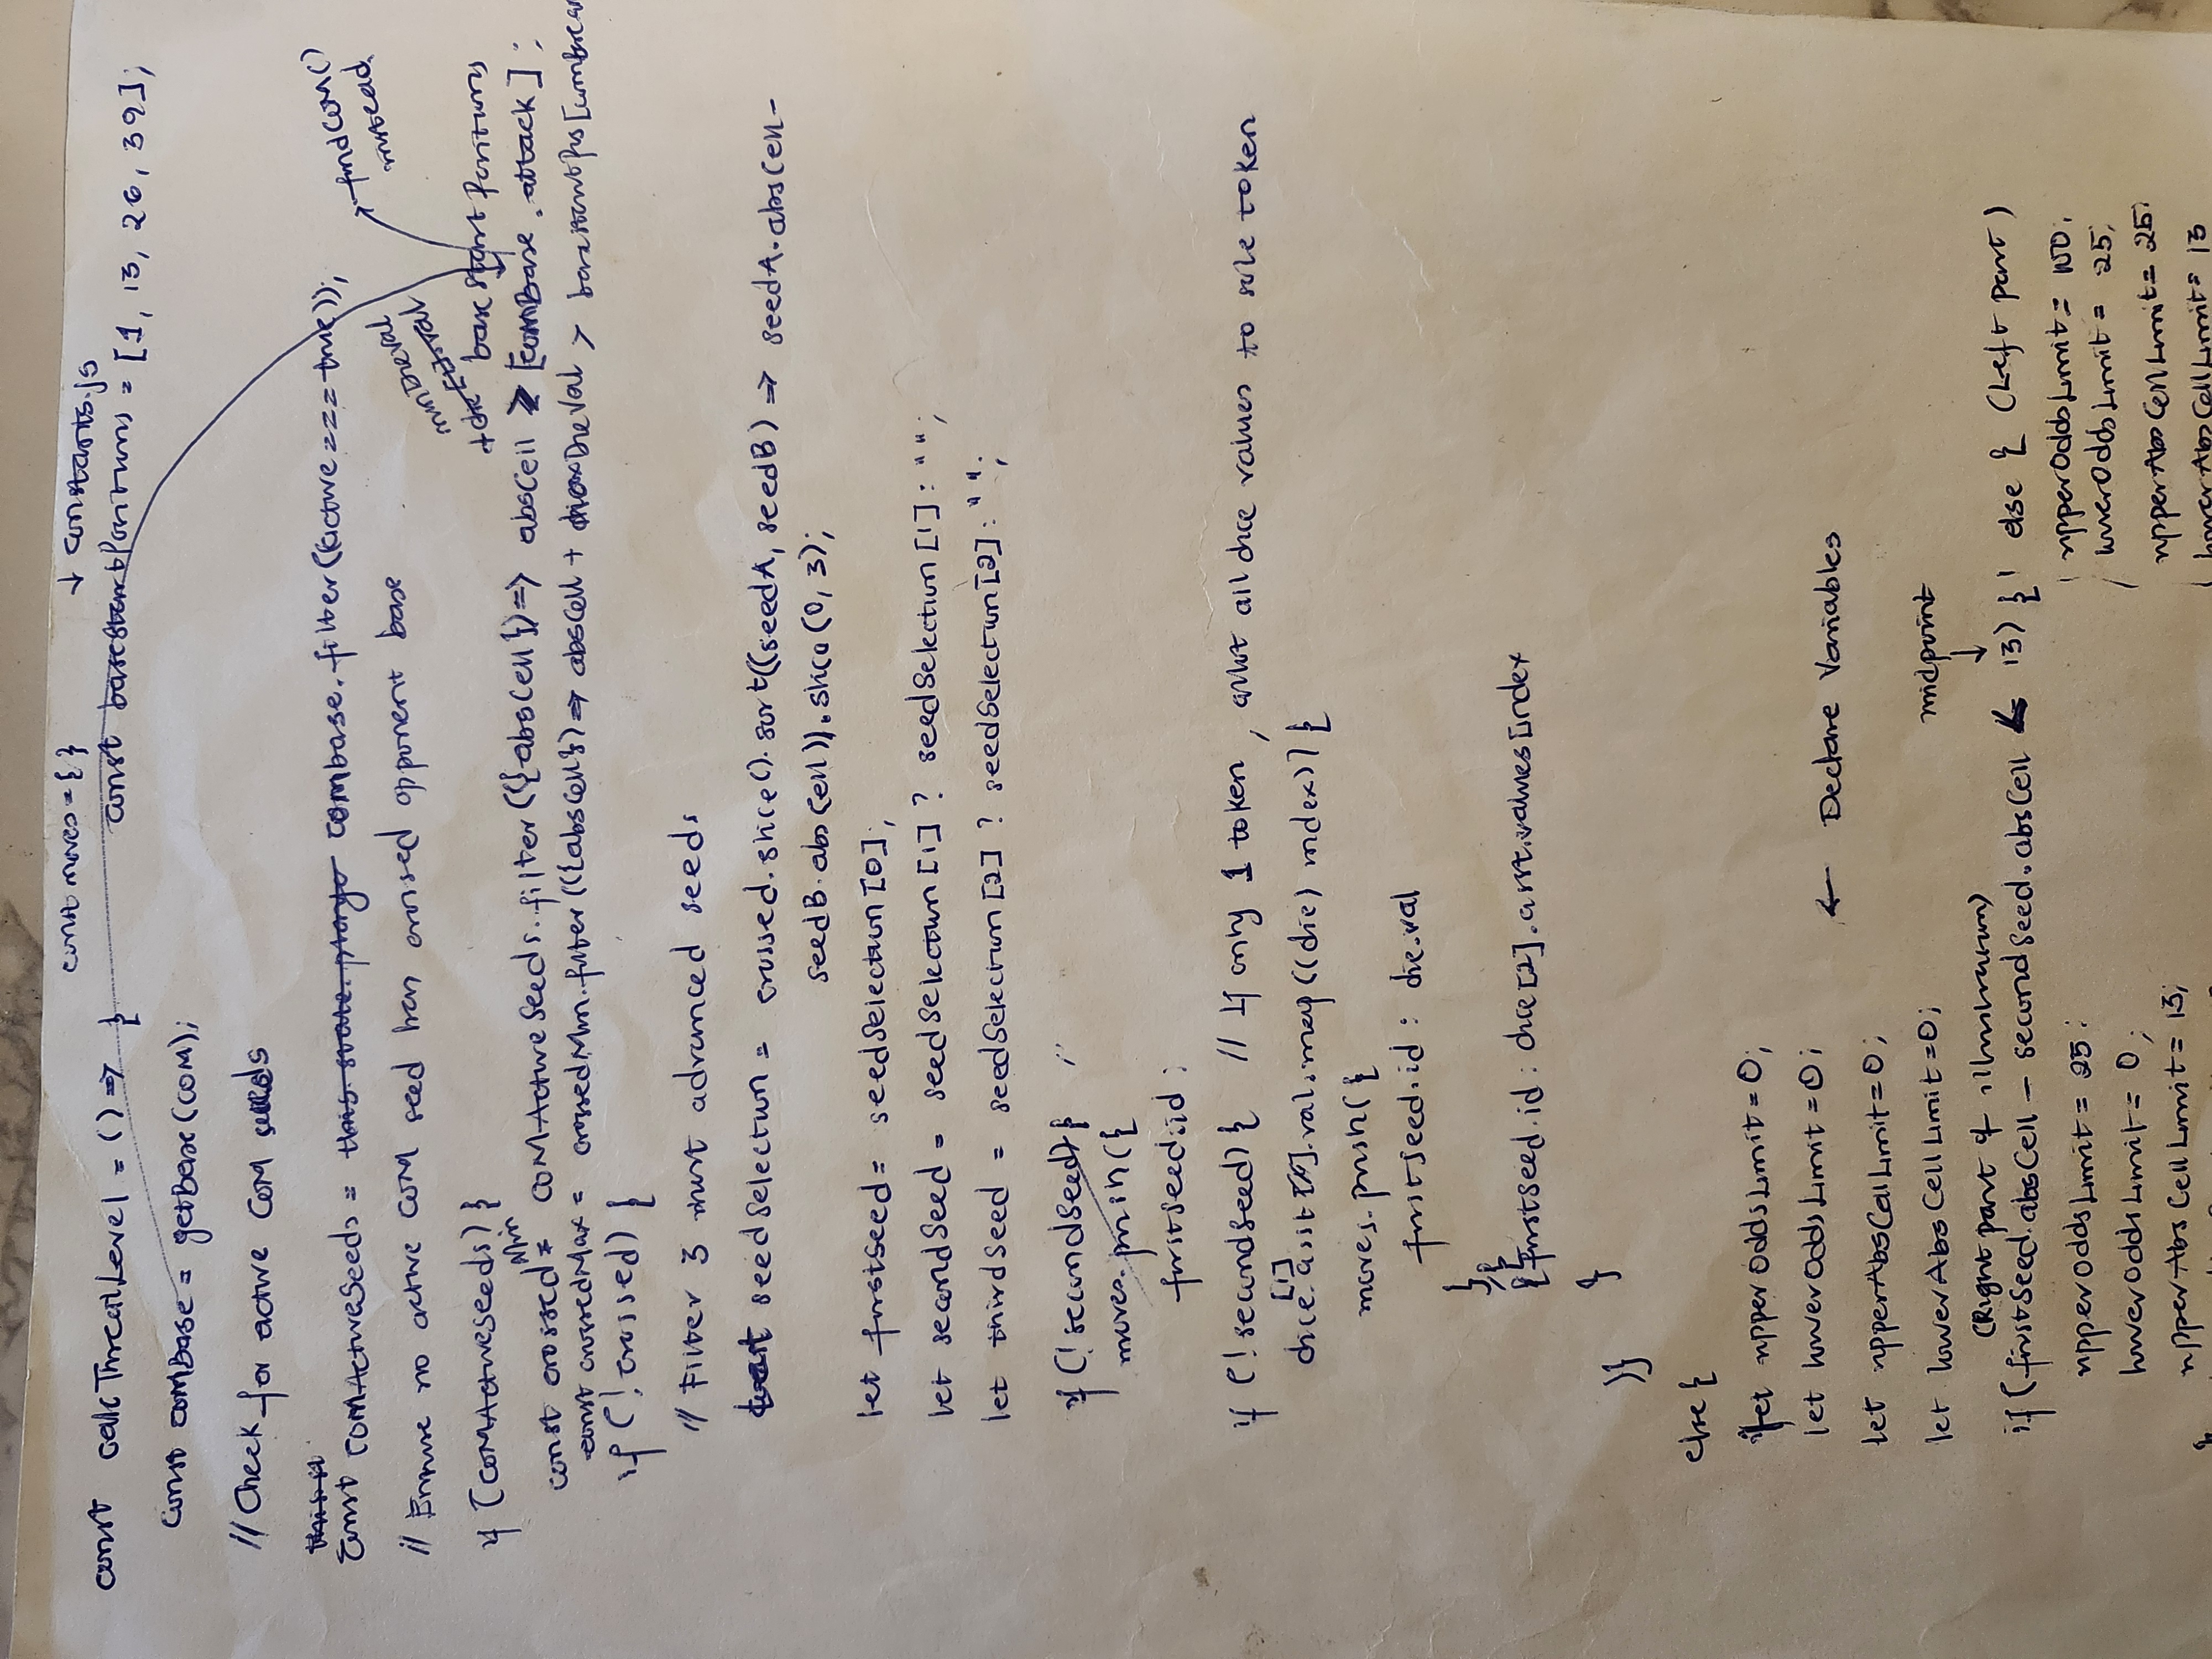 const moves = { }
↓ constants.js
const calcThreatLevel = () => {
const baseStartPositions = [1, 13, 26, 39];
const comBase = getBase(COM);
// Check for active COM seeds
this.st
const COMActiveSeeds = this.state.playe combase.filter((active === true));
findCOM()
instead
// Ensure no active COM seed has crossed opponent base
minDieVal
+ die[1].val
if (COMActiveSeeds) {
baseStartPositions
Min
const crossed = COMActiveSeeds.filter(({absCell}) => absCell > [comBase.attack];
const crossedMax = crossedMin.filter(({absCell}) => absCell + maxDieVal > baseStartPos[comBase.at
if (! crossed) {
// Filter 3 most advanced seeds
seedSelection = crossed.slice().sort((seedA, seedB) => seedA.absCell -
seedB.absCell)).slice(0, 3);
let firstSeed = seedSelection[0];
let secondSeed = seedSelection[1] ? seedSelection[1] : "";
let thirdSeed = seedSelection[2] ? seedSelection[2] : "";
if (! secondSeed) {
moves.push({
firstSeed.id ;
if (! secondSeed) { // If only 1 token, allot all dice values to sole token
[1]
dice.asst.val.map((die) index)) {
moves.push({
firstSeed.id : die.val
},
{firstSeed.id : dice[2].asst.values[index
}
)}
else {
let upperOddsLimit = 0;
let lowerOddsLimit = 0;
← Declare Variables
let upperAbsCellLimit = 0;
let lowerAbsCellLimit = 0;
midpoint
↓
(Right part of illustration)
if (firstSeed.absCell - secondSeed.absCell < 13) { else { (Left part)
upperOddsLimit = 25;
upperOddsLimit = 100;
lowerOddsLimit = 0;
lowerOddsLimit = 25;
upperAbsCellLimit = 13;
upperAbsCellLimit = 25;
lowerAbsCellLimit = 13